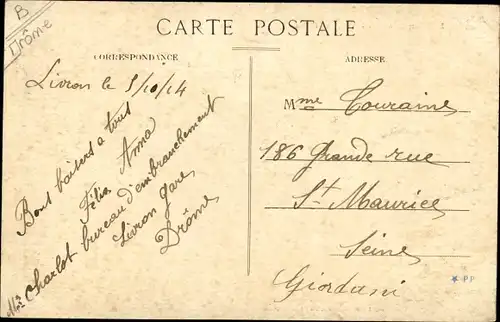 B
Drôme
CARTE POSTALE
CORRESPONDANCE
ADRESSE
Livron le 5/10/14
Bons baisers a tous
Félix Anna
Charlot bureau d'embranchement
Livron gare
Drôme
Mme Touraine
186 Grande rue
St Maurice
Seine
Giordani
PP